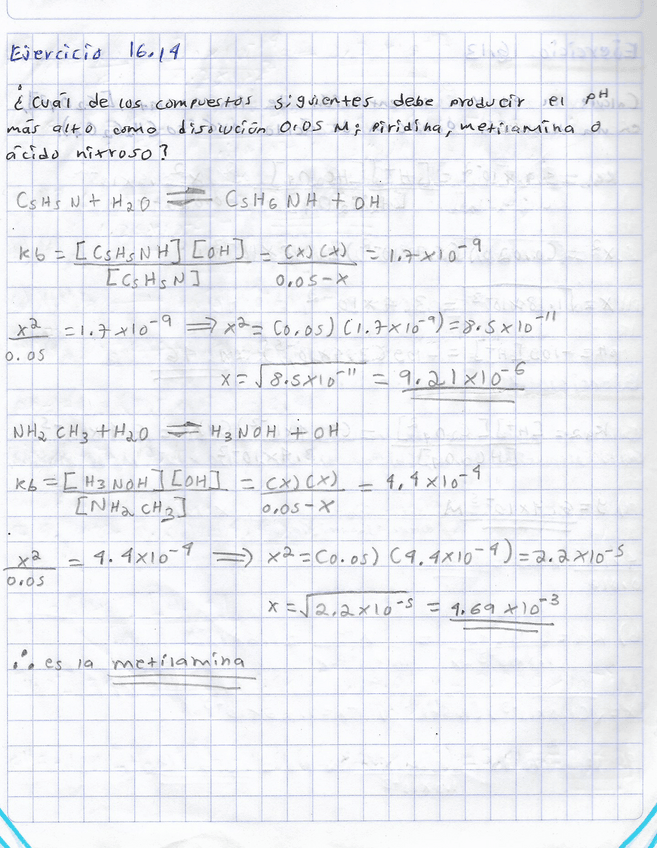 Ejercicio 16.14
¿Cuál de los compuestos siguientes debe producir el pH
más alto como disolución 0.05 M; piridina, metilamina o
ácido nitroso?
C5H5N + H2O ⇌ C5H6NH + OH
Kb = [C5H5NH][OH] / [C5H5N] = (x)(x) / 0.05-x = 1.7x10^-9
x^2 / 0.05 = 1.7x10^-9 ⇒ x^2 = (0.05)(1.7x10^-9) = 8.5x10^-11
x = √8.5x10^-11 = 9.21x10^-6
NH2CH3 + H2O ⇌ H3NOH + OH
Kb = [H3NOH][OH] / [NH2CH3] = (x)(x) / 0.05-x = 4.4x10^-4
x^2 / 0.05 = 4.4x10^-4 ⇒ x^2 = (0.05)(4.4x10^-4) = 2.2x10^-5
x = √2.2x10^-5 = 4.69x10^-3
∴ es la metilamina